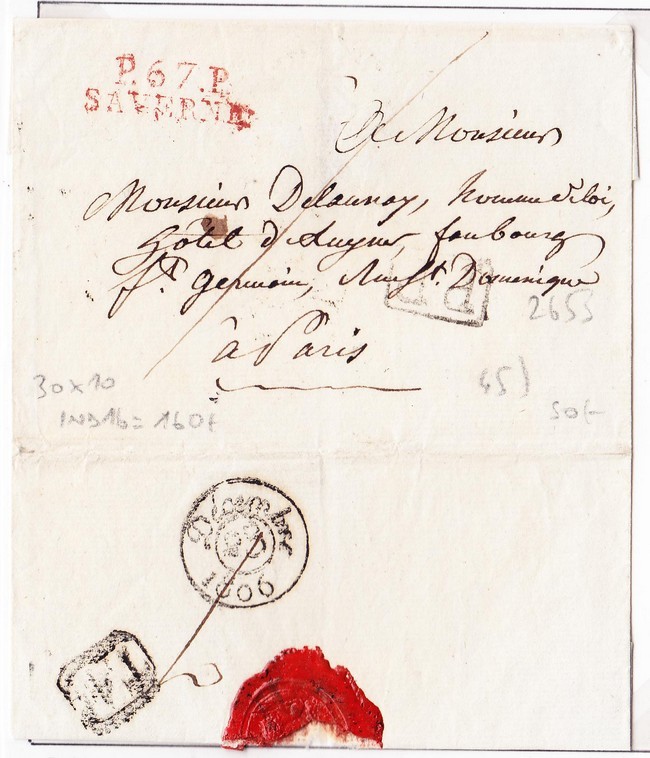 P.67.P.
SAVERNE
A Monsieur
Monsieur Delaunay, homme de loi,
hôtel d'Auguy, faubourg
St. germain, Rue St. Dominique
à Paris
2653
30x10
45)
IND16 = 160f
50f-
Décembre
1806